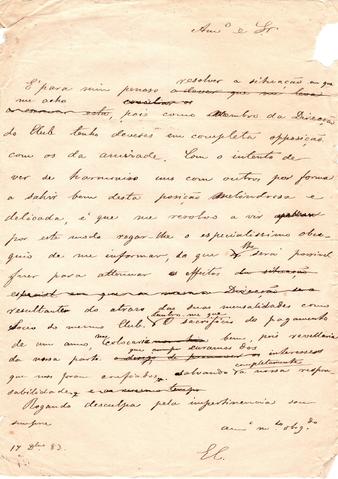 Am.º e Sr.
É para mim penoso resolver a situação em que
me acho
pois como membro da Direcção
do Club tenho deveres em completa opposição
com os da amizade. Com o intento de
ver se harmoniso uns com outros por forma
a sahir bem desta posição melindrosa e
delicada, é que me resolvo a vir
por este modo rogar-lhe o especialissimo obse-
quio de me informar, do que lhe será possivel
fazer para attenuar os effeitos da situação
especial em que a nossa Direcção se
resultantes do atrazo das suas mensalidades como
socio do mesmo Club. Lembro-me que O sacrificio do pagamento
de um anno, collocava bem, pois resultaria
da nossa parte curarmos dos interesses
que nos foram confiados, salvando completamente a nossa respon
sabilidade, e ao mesmo tempo
Rogando desculpa pela impertinencia sou
sempre
am.º m.to obg.do
17 Dbro 83.
EC.